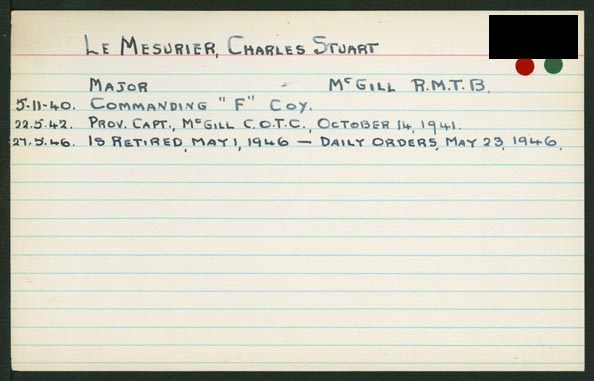 LE MESURIER, CHARLES STUART
MAJOR McGILL R.M.T.B.
5-11-40. COMMANDING "F" COY.
22.5.42. PROV. CAPT., McGILL C.O.T.C., OCTOBER 14, 1941.
27.5.46. IS RETIRED, MAY 1, 1946 — DAILY ORDERS, MAY 23, 1946.